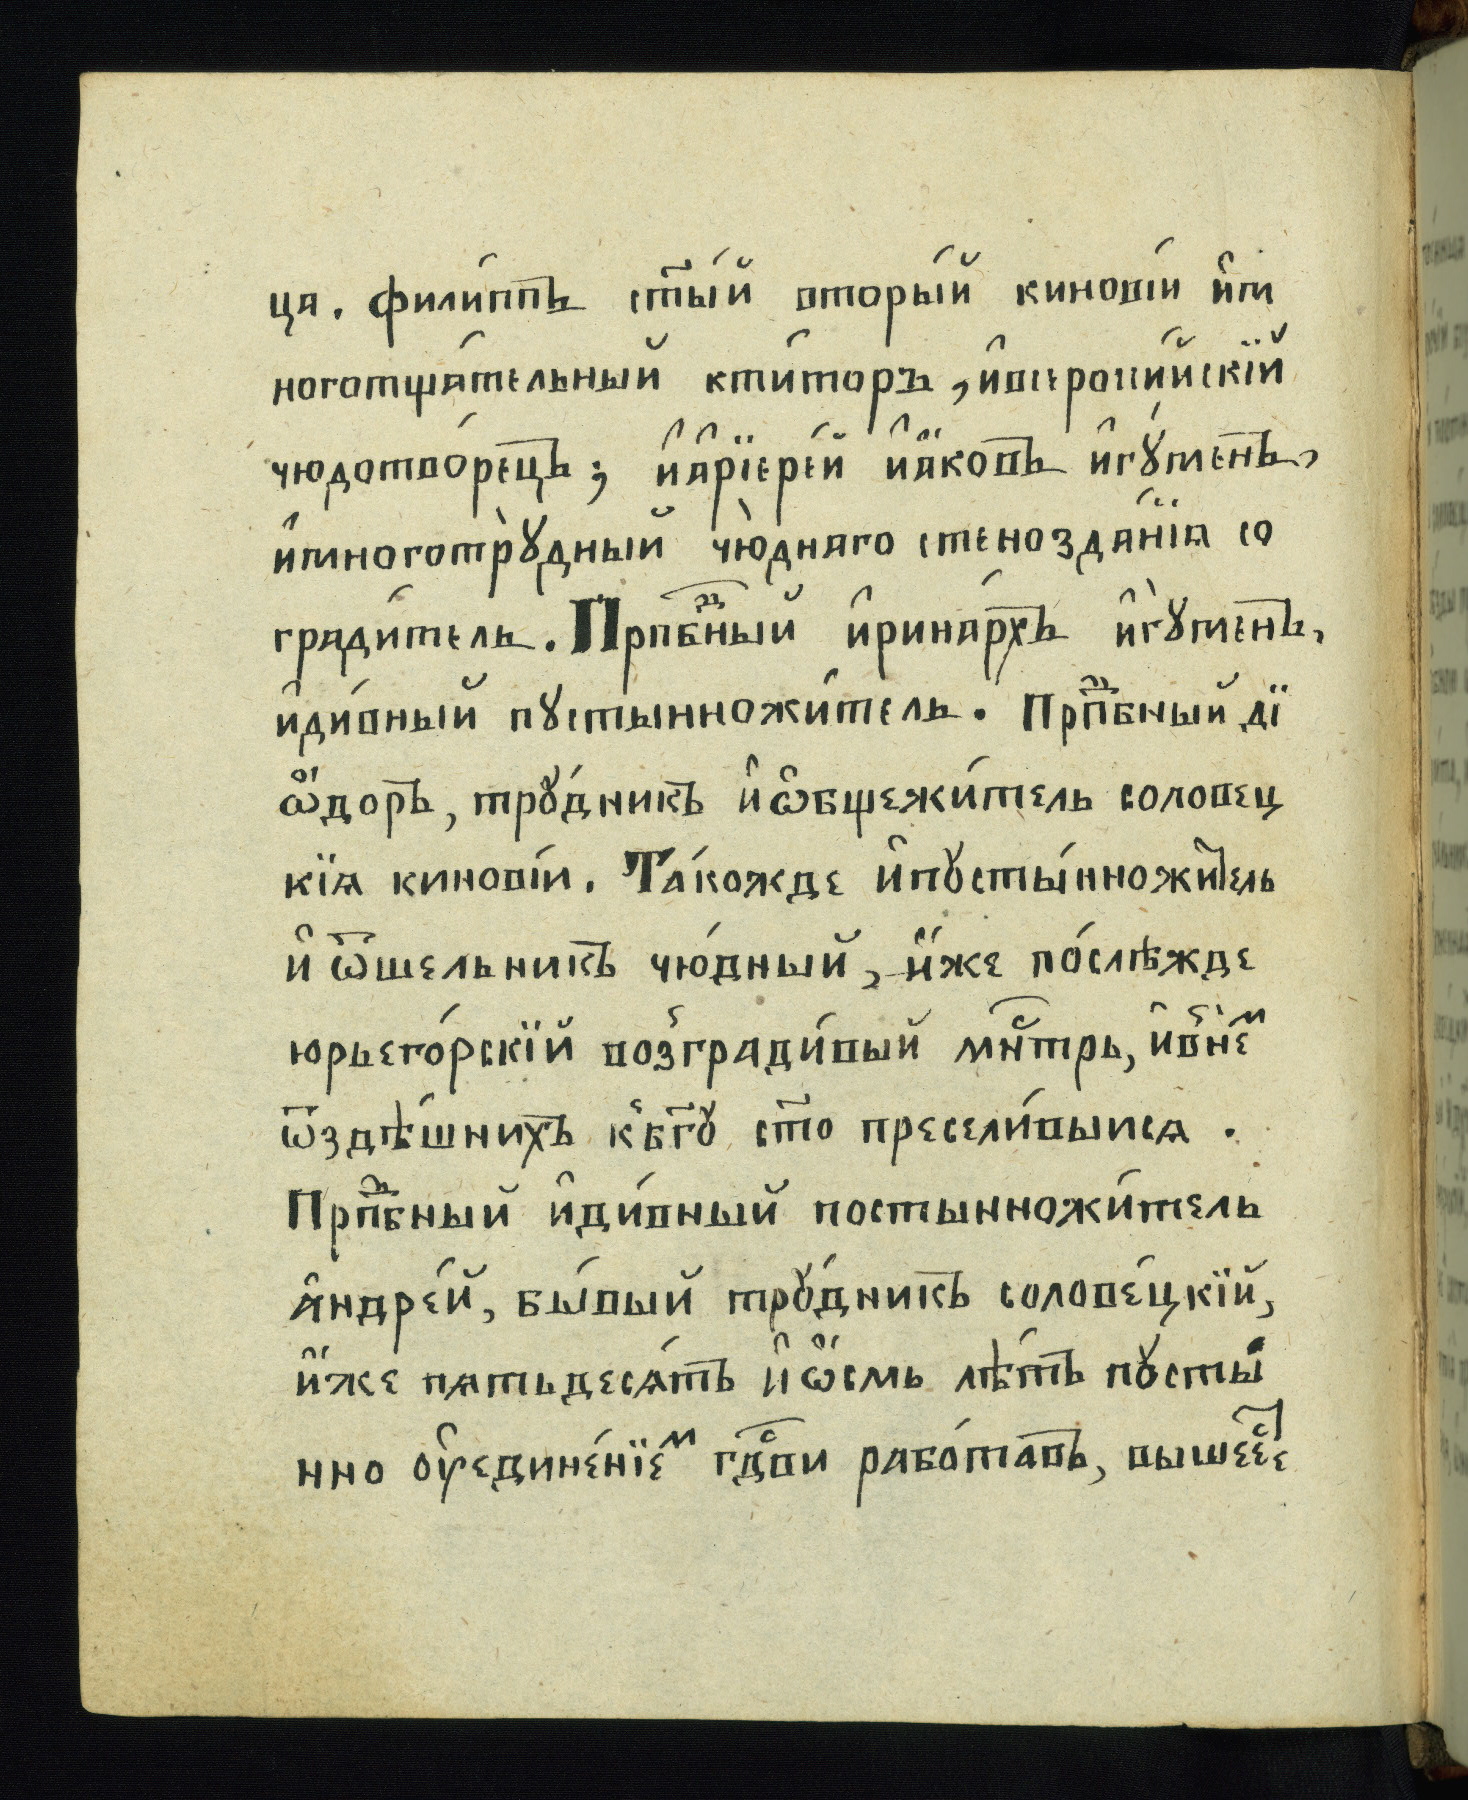 ца. фили́ппъ ст҃ы́й вторы́й кинові́и и҆м
ноготща́тельный кти́торъ, и҆всеросі́йскїй
чюдотво́рецъ; и҆а҆рїере́й и҆а҆́ковъ и҆гꙋ́менъ,
и҆многотрꙋ́дный чю́дняго стенозда́нїѧ со
гради́тель. Прпⷣбный и҆рина́рхъ и҆гꙋ́менъ,
и҆ди́вный пꙋстынножи́тель. Прпⷣбный дї
ѡ҆́доръ, трꙋ́дникъ и҆ ѡ҆бщежи́тель соловец
кїѧ кинові́и. Та́кожде и҆пꙋсты́нножитель
и҆ ѿшельникъ чю́дный, и҆́же по́слѣжде
юрьего́рскїй возгради́вый мн҃трь, и҆вне́ⷨ
ѿздѣ́шнихъ къбг҃ꙋ ст҃о пресели́выися.
Прпⷣбный и҆ди́вный постынножи́тель
а҆ндре́й, бы́вый трꙋ́дникъ солове́цкїй,
и҆́же пѧтьдесѧ́тъ и҆ ѡ҆́смь лѣ́тъ пꙋсты́
нно ᲂу҆едине́нїеⷨ гдⷭ҇ви рабо́тавъ, вышеⷭ҇е